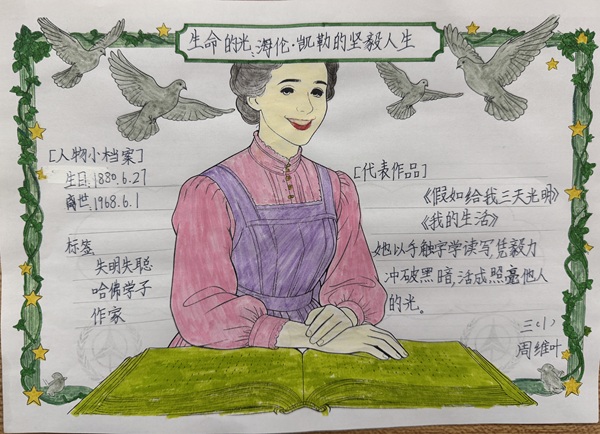 生命的光、海伦·凯勒的坚毅人生
[人物小档案]
生日.1880.6.27
离世.1968.6.1
标签
失明失聪
哈佛学子
作家
[代表作品]
《假如给我三天光明》
《我的生活》
她以手触字学读写,凭毅力
冲破黑暗,活成照亮他人
的光。
三(1)
周维叶